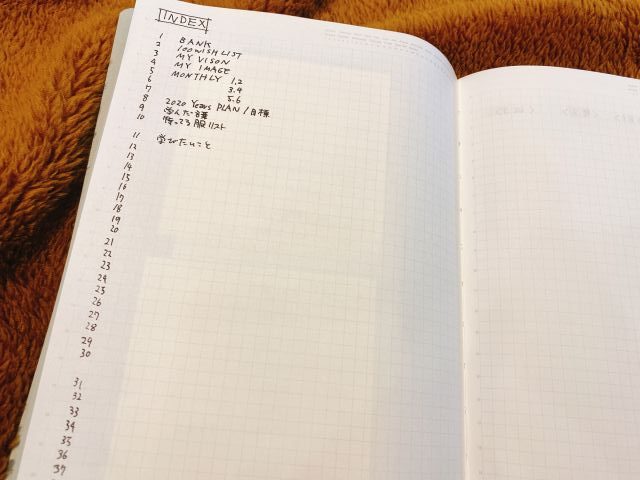 INDEX
1 BANK
2 100 WISH LIST
3 MY VISON
4 MY IMAGE
5 MONTHLY 1.2
6 3.4
7 5.6
8 2020 Years PLAN / 目標
9 学んだ
10 持ってる服リスト
11 学びたいこと
12
13
14
15
16
17
18
19
20
21
22
23
24
25
26
27
28
29
30
31
32
33
34
35
36
37